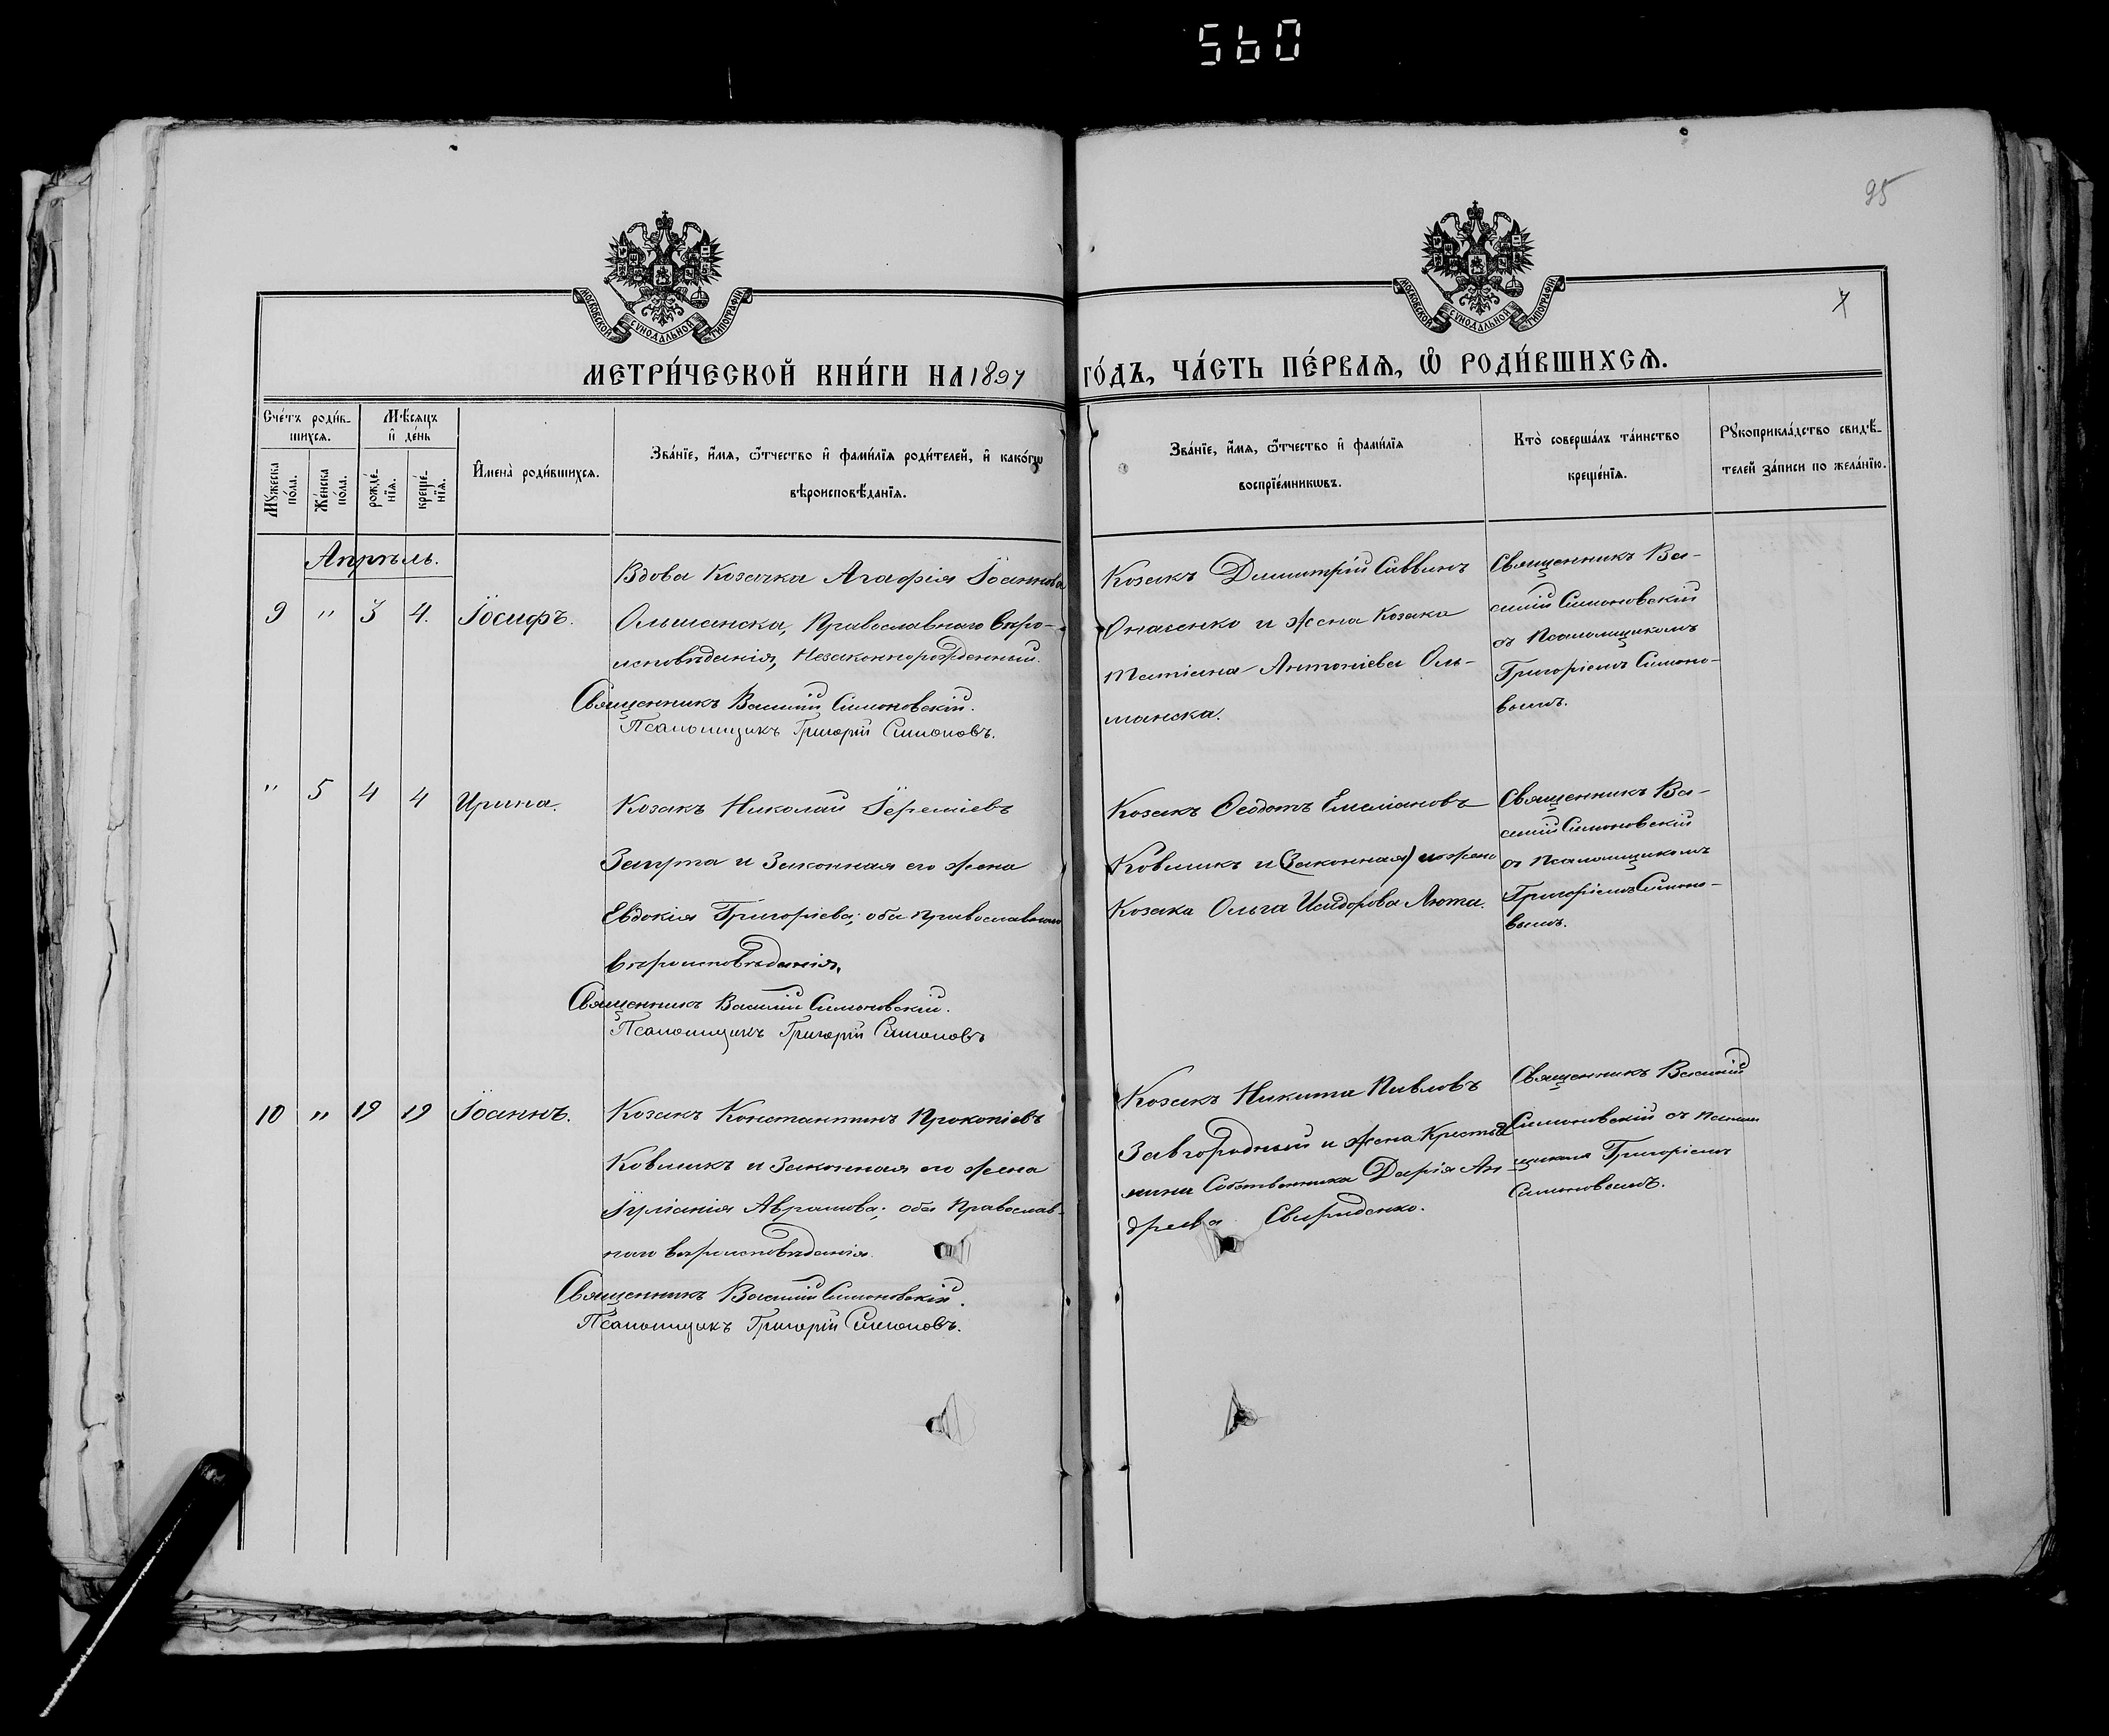 560
95
7
МОСКОВСКОЙ СУНОДАЛЬНОЙ ТИПОГРАФІИ
МОСКОВСКОЙ СУНОДАЛЬНОЙ ТИПОГРАФІИ
МЕТРИ́ЧЕСКОЙ КНИ́ГИ НА 1897 ГО́ДЪ, ЧА́СТЬ ПЕ́РВАѦ, Ѡ РОДИ́ВШИХСѦ.
Сче́тъ роди́в-
шихсѧ.
Мѣ́сѧцъ
и҆ де́нь
Мꙋ́жеска
по́ла.
Же́нска
по́ла.
рожде́-
нїѧ.
креще́-
нїѧ.
И҆мена̀ роди́вшихсѧ.
Зва́нїе, и҆́мѧ, ѻ҆́тчество и҆ фами́лїѧ роди́телей, и҆ како́гѡ
вѣроисповѣ́данїѧ.
Зва́нїе, и҆́мѧ, ѻ҆́тчество и҆ фами́лїѧ
воспрїе́мникѡвъ.
Кто̀ соверша́лъ та́инство
креще́нїѧ.
Рꙋкоприкла́дство свидѣ́-
телей за́писи по жела́нїю.
Апрѣль.
9 " 3 4. Іосифъ.
Вдова Козачка Агафія Іоаннова
Ольшанска, Православнаго Вѣро-
исповѣданія, Незаконнорожденный.
Священникъ Василій Симоновскій.
Псаломщикъ Григорій Симоновъ.
Козакъ Димитрій Саввинъ
Опасенко и жена Козака
Татіана Антоніева Оль-
шанска.
Священникъ Ва-
силій Симоновскій
съ Псаломщикомъ
Григоріемъ Симоно-
вымъ.
" 5 4 4 Ирина.
Козакъ Николай Іереміевъ
Запрта и Законная его жена
Евдокія Григоріева; оба Православнаго
вѣроисповѣданія.
Священникъ Василій Симоновскій.
Псаломщикъ Григорій Симоновъ
Козакъ Ѳеодотъ Емеліановъ
Ковшикъ и (Законная) жена
Козака Ольга Исидорова Люта.
Священникъ Ва-
силій Симоновскій
съ Псаломщикомъ
Григоріемъ Симоно-
вымъ.
10 " 19 19 Іоаннъ.
Козакъ Константинъ Прокопіевъ
Ковшикъ и Законная его жена
Іуліанія Аврамова; оба Православ-
наго вѣроисповѣданія.
Священникъ Василій Симоновскій.
Псаломщикъ Григорій Симоновъ.
Козакъ Никита Павловъ
Завгородный и жена Крестья
нина Собственника Дарія Ан
дреева Свириденко.
Священникъ Василій
Симоновскій съ Псалом
щикомъ Григоріемъ
Симоновымъ.